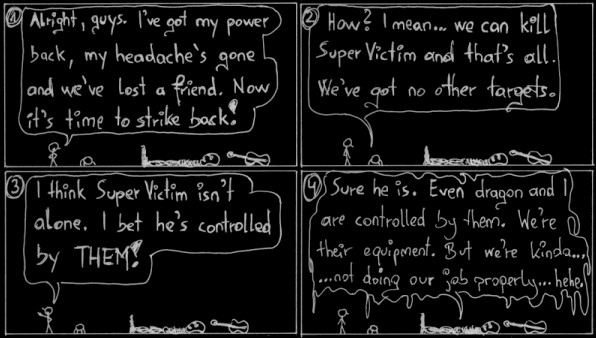 1 Alright, guys. I've got my power
back, my headache's gone
and we've lost a friend. Now
it's time to strike back!
2 How? I mean... we can kill
Super Victim and that's all.
We've got no other targets.
3 I think Super Victim isn't
alone. I bet he's controlled
by THEM!
4 Sure he is. Even dragon and I
are controlled by them. We're
their equipment. But we're kinda...
...not doing our job properly...hehe.